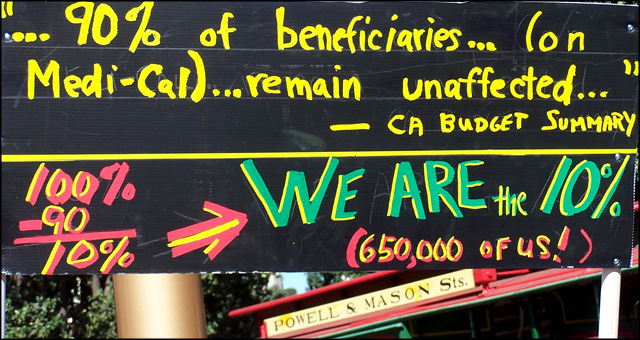 "... 90% of beneficiaries... (on
Medi-Cal)...remain unaffected..."
— CA BUDGET SUMMARY
100%
-90
10%
WE ARE the 10%
(650,000 OF US!)
POWELL & MASON Sts.